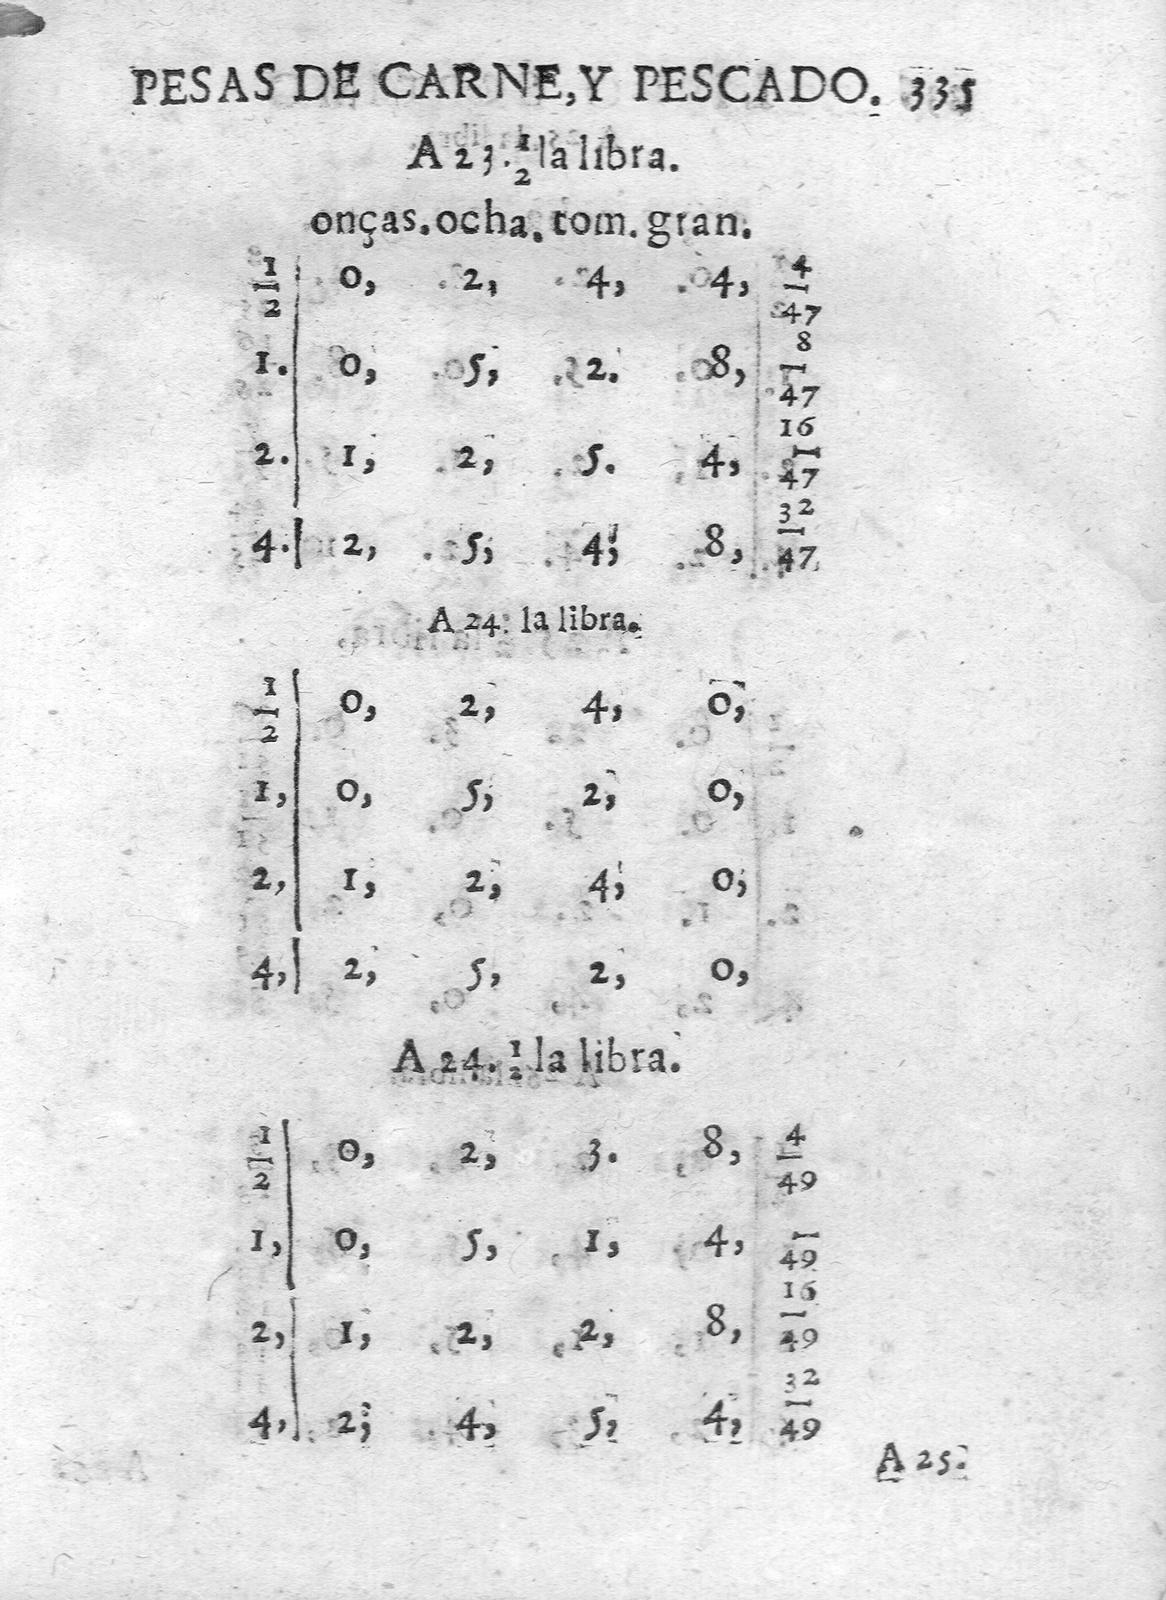 PESAS DE CARNE, Y PESCADO. 335
A 23. 1/2 la libra.
onças. ocha. tom. gran.
1/2 | 0, 2, 4, 4, 4/47
1. | 0, 5, 2. 8, 8/47
2. | 1, 2, 5. 4, 16/47
4. | 2, 5, 4, 8, 32/47
A 24. la libra.
1/2 | 0, 2, 4, 0,
1, | 0, 5, 2, 0,
2, | 1, 2, 4, 0,
4, | 2, 5, 2, 0,
A 24. 1/2 la libra.
1/2 | 0, 2, 3. 8, 4/49
1, | 0, 5, 1, 4, /49
2, | 1, 2, 2, 8, 16/49
4, | 2, 4, 5, 4, 32/49
A 25.